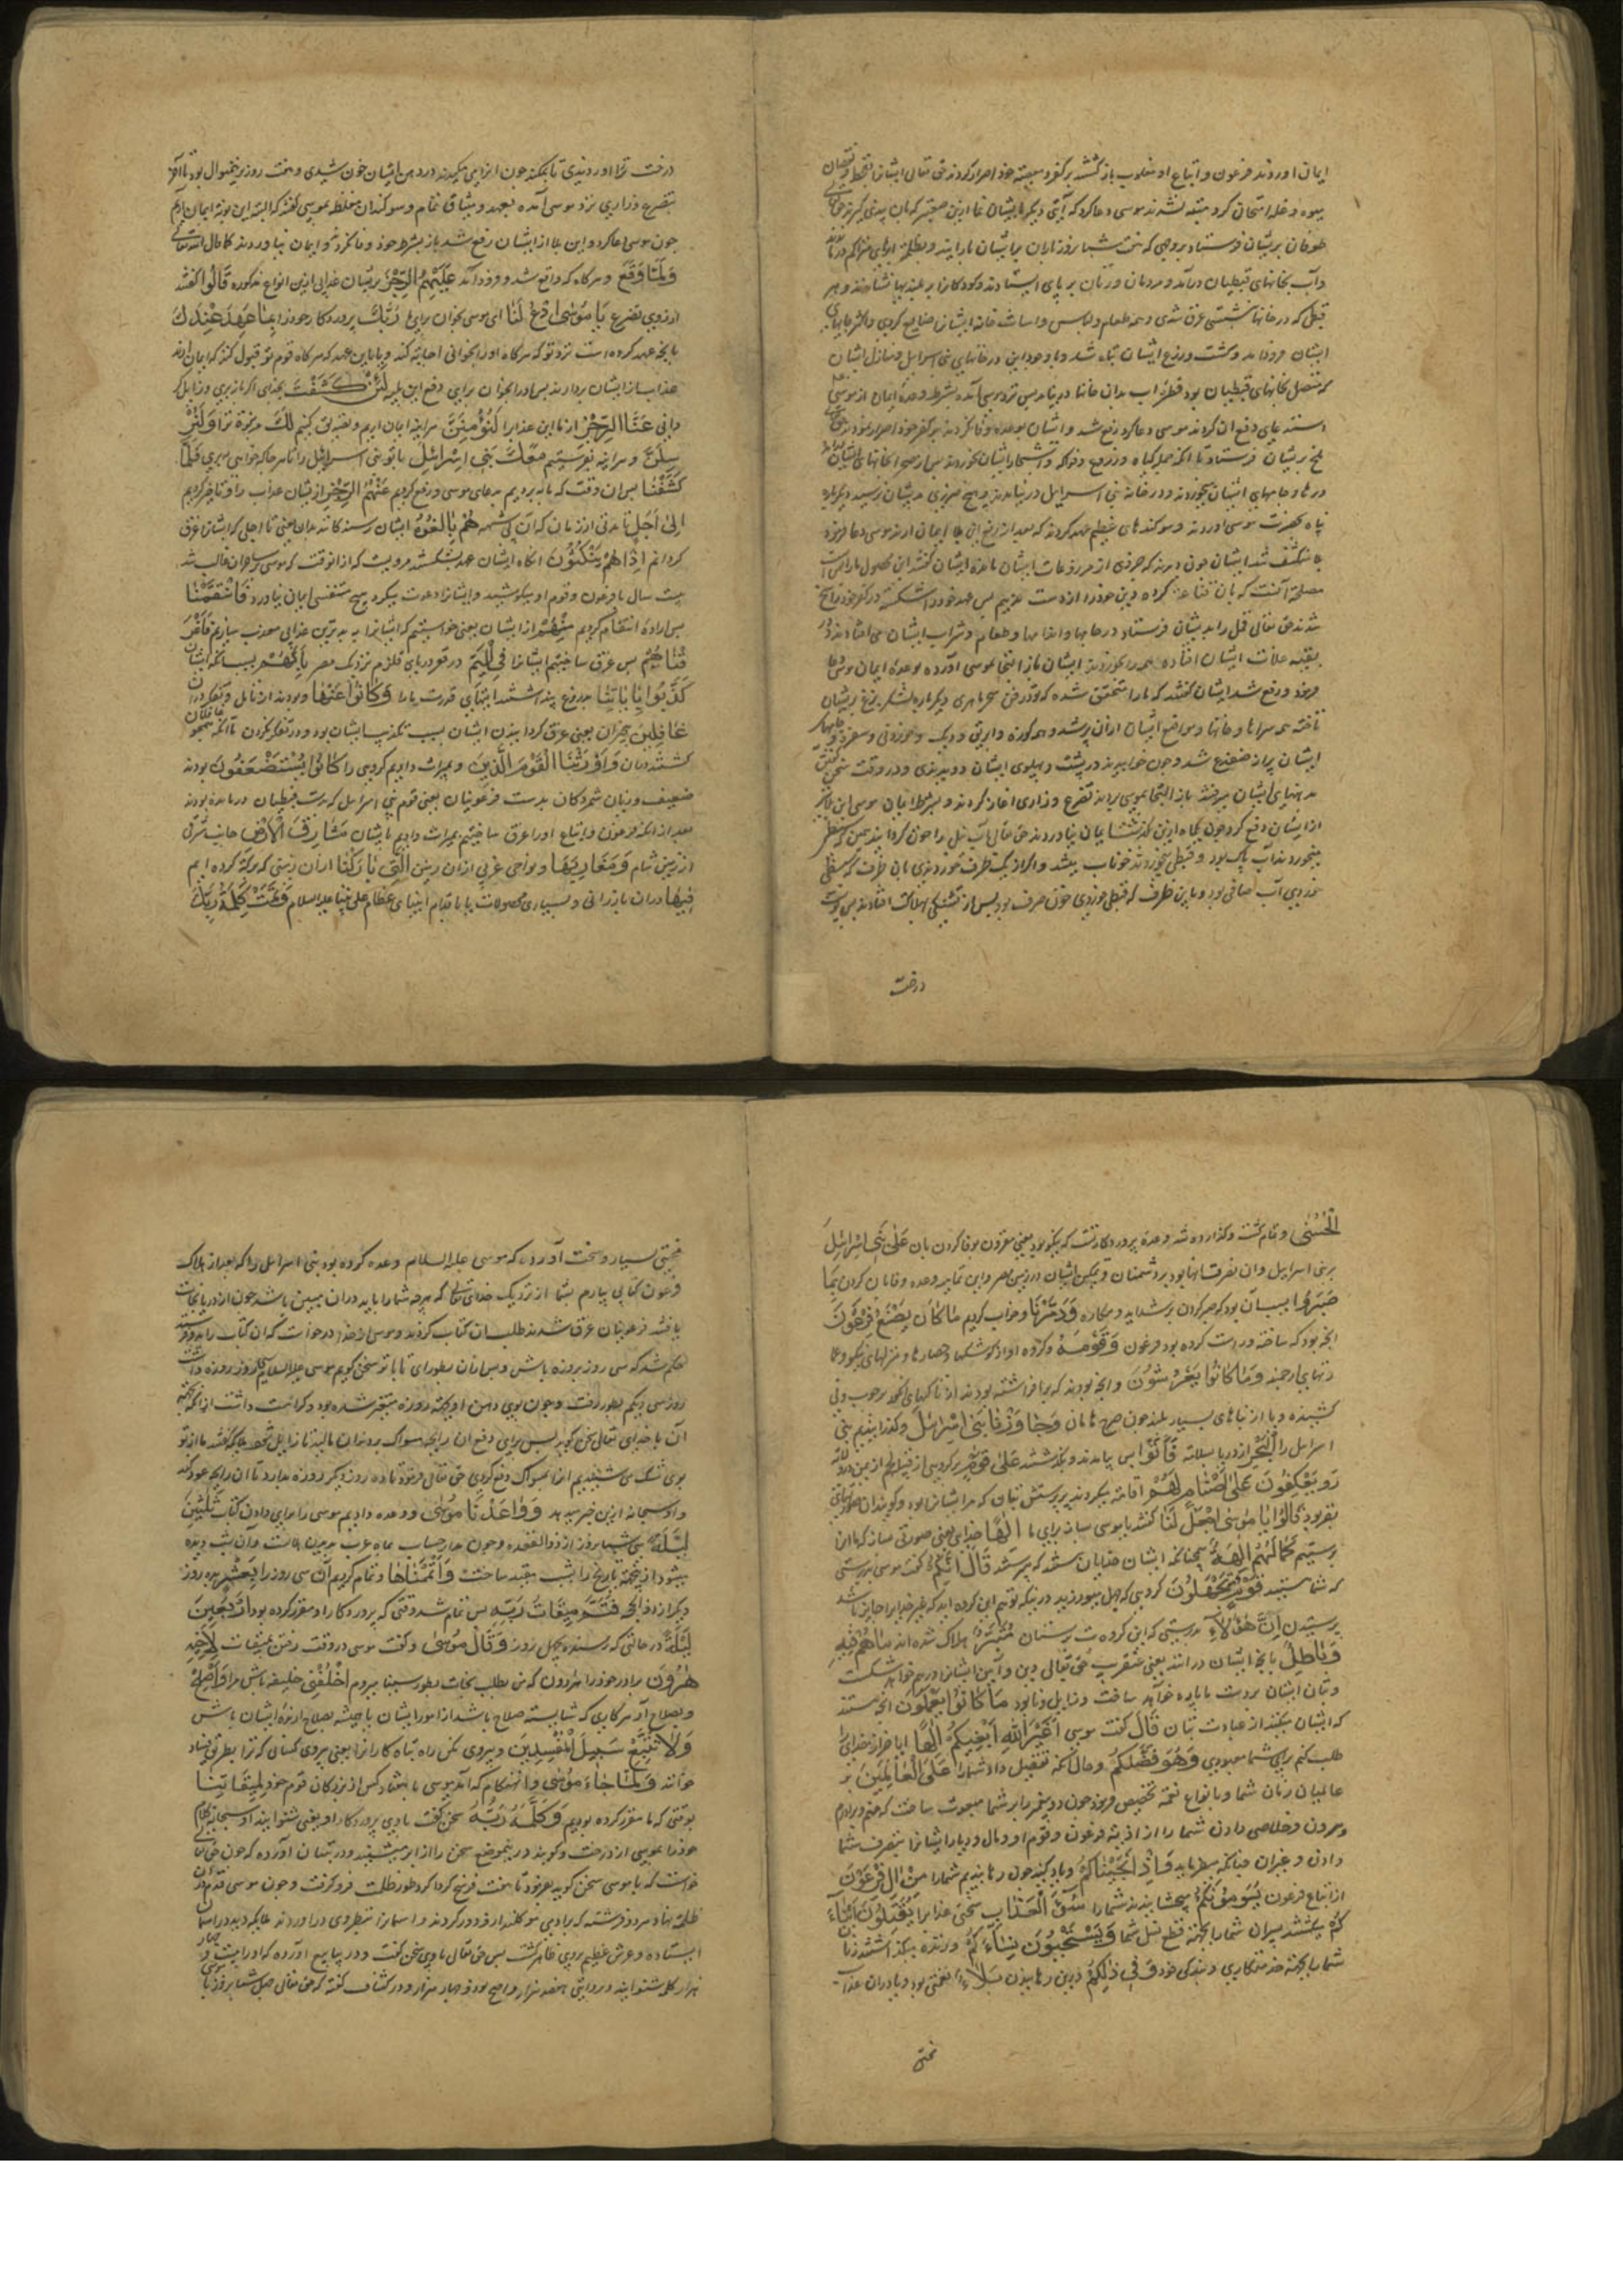 ایمان اوردند فرعون و اتباع او مغلوب بازگشتند برکفر و معصیته خود اصرار کردند حق تعالی ایشانرا بقحط و نقصان
میوه و غله امتحان کرد متنبه نشدند موسی دعا کرد که آیتی دیکر بایشان نما ازین صعبتر که بآن پند کیرند حق تعالی
طوفان بریشان فرستاد بروجهی که هفت شبانروز باران برایشان بارانید
وآب بخانهای قبطیان درآمد و مردمان و زنان بر پای ایستادند و کودکانرا بر بلندیها نشاختند و هر
قبطی که در خانها نشستی غرق شدی و همه طعام و لباس و اساث خانه ایشانرا ضایع کردی
ایشان فرو ماند و کشت و زرع ایشان تباه شد و با وجود این در خانهای بنی اسرایل و منازل ایشان
که متصل بخانهای قبطیان بود قطره آب بدان خانها در نیامد پس نزد موسی آمده بشرط وعده ایمان از موسی
استدعای دفع آن کردند موسی دعا کرد رفع شد و ایشان بوعده وفا نکردند بر کفر خود اصرار نمودند حق تعالی
ملخ بریشان فرستاد تا آنکه جمله کیاه و زروع و فواکه و اشجار ایشان بخوردند
درها و جامهای ایشان بخوردند و در خانه بنی اسرایل در نیامدند و هیچ ضرری بدیشان نرسید دیکر باره
پناه بحضرت موسی اوردند و سوکندهای عظیم عهد کردند که بعد از رفع این بلا ایمان ارند موسی دعا فرمود
بلا منکشف شد ایشان چون دیدند که چیزی از مزروعات ایشان مانده ایشان کفتند این محصول ما را کافی است
مصلحة آنست که بآن قناعت کرده دین خود را از دست ندهیم پس عهد خود را شکسته در کفر خود راسخ
شدند حق تعالی قمل را بدیشان فرستاد در جامها و اندامها و طعام و شراب ایشان می افتادند و
بقیه غلات ایشان افتاده همه را بخوردند ایشان باز التجا بموسی آورده بوعده ایمان موسی دعا
فرمود و رفع شد ایشان کفتند که ما را متحقق شده که تو در فن سحر ماهری دیکر باره لشکر بزغ بریشان
تاخته همه سراها و خانها و مواضع ایشان ازان پر شد و همه کوزه و ابریق و دیک و خوردنی و سفره و جامهای
ایشان پر از ضفدع شد و چون خوابیدند در پشت و پهلوی ایشان دویدندی و در وقت سخن گفتن
بدهنهای ایشان میرفتند باز التجا بموسی برده تضرع و زاری اغاز کردند و بشرط ایمان موسی این بلا نیز
از ایشان دفع کرد چون یکماه ازین بگذشت ایمان نیاوردند حق تعالی آب نیل را خون کردانید
میخوردند آب پاک بود و قبطی میخوردند خوناب میشد و اگر از یک ظرف خوردندی بآن طرف که سبطی
خوردی آب صافی بود و باین طرف که قبطی خوردی خون صرف بود پس از تشنگی بهلاکت افتادند پس پوست
درخت
درخت ترا اوردندی تا بمکند چون انرا می مکیدند در دهن ایشان خون شدی و هفت روز برین منوال بود تا آخر
بتضرع و زاری نزد موسی آمده بعهد و میثاق تمام و سوکندان مغلظه بموسی کفتند که البته این نوبة ایمان اریم
چون موسی دعا کرد و این بلا از ایشان رفع شد باز بشرط خود وفا نکردند و ایمان نیاوردند کما قال الله تعالی
وَلَمَّا وَقَعَ و هرکاه که واقع شد و فرود آمد عَلَیْهِمُ الرِّجْزُ بریشان عذابی ازین انواع مذکوره قَالُوا کفتند
از روی تضرع یَا مُوسَی ادْعُ لَنَا ای موسی بخوان برای ما رَبَّكَ پروردکار خود را بِمَا عَهِدَ عِنْدَكَ
بانچه عهد کرده است نزد تو که هرکاه اورا بخوانی اجابة کند و یا باین عهد که هرکاه قوم تو قبول کنند که ایمان ارند
عذاب را از ایشان بردارد پس اورا بخوان برای دفع این بلیه لَئِنْ كَشَفْتَ بخدای اگر باز بری و زایل کر
دانی عَنَّا الرِّجْزَ از ما این عذابرا لَنُؤْمِنَنَّ هراینه ایمان اریم و تصدیق کنیم لَكَ مر نبوة ترا وَلَنُرْ
سِلَنَّ و هراینه بفرستیم مَعَكَ بَنِی إِسْرَائِیلَ با تو بنی اسرائیل را تا هرجا که خواهی ببری فَلَمَّا
كَشَفْنَا پس ان وقت که باز بردیم بدعای موسی و رفع کردیم عَنْهُمُ الرِّجْزَ از ایشان عذاب را و تاخیر کردیم
إِلَى أَجَلٍ تا مدتی از زمان که آن قوم هُمْ بَالِغُوهُ ایشان رسنده کانند بدان یعنی تا اجلی که ایشانرا غرق
کردانم إِذَا هُمْ يَنْكُثُونَ انکاه ایشان عهد بشکستند مرویست که ازانوقت که موسی بر ساحران غالب شد
بیست سال با فرعون و قوم او بکوشید و ایشانرا دعوت میکرد هیچ متنفسی ایمان نیاورد فَانْتَقَمْنَا
پس اراده انتقام کردیم مِنْهُمْ از ایشان یعنی خواستیم که ایشانرا به بدترین عذابی معذب سازیم فَأَغْرَ
قْنَاهُمْ پس غرق ساختیم ایشانرا فِی الْیَمِّ در قعر دریای قلزم نزدیک مصر بِأَنَّهُمْ بسبب آنکه ایشان
كَذَّبُوا بِآیَاتِنَا بدروغ پنداشتند ایتهای قدرت ما را وَكَانُوا عَنْهَا و بودند از تامل و تفکر دران
غَافِلِینَ بیخبران یعنی غرق کردانیدن ایشان بسبب تکذیب ایشان بود و در تفکر نکردن تا آنکه همچو غافلان
کشتند دران وَأَوْرَثْنَا الْقَوْمَ الَّذِینَ و بمیراث دادیم کروهی را كَانُوا یُسْتَضْعَفُونَ بودند
ضعیف و زبان شمردکان بدست فرعونیان یعنی قوم بنی اسرایل که بدست قبطیان درمانده بودند
بعد از آنکه فرعون و اتباع اورا غرق ساختیم بمیراث دادیم بایشان مَشَارِقَ الْأَرْضِ جانب شرقی
از زمین شام وَمَغَارِبَهَا و نواحی غربی ازان زمین الَّتِی بَارَكْنَا ازان زمینی که برکة کرده ایم
فِیهَا دران بارزانی و بسیاری محصولات یا باقدام انبیای عظام علی نبینا علیه السلام وَتَمَّتْ كَلِمَةُ رَبِّكَ
الْحُسْنَى و تمام کشت و کذارده شد وعده پروردکار تست که نیکو بود یعنی مقرون بوفا کردن بان عَلَى بَنِی إِسْرَائِیلَ
بر بنی اسرایل و ان نصرت انها بود بر دشمنان و تمکین ایشان در زمین مصر و این تمامی وعده و وفا بآن کردن بِمَا
صَبَرُوا بسبب آن بود که صبر کردن بر شداید و مکاره وَدَمَّرْنَا و خراب کردیم مَا كَانَ یَصْنَعُ فِرْعَوْنُ
انچه بود که ساخته و راست کرده بود فرعون وَقَوْمُهُ و کروه او از کوشکها و حصارها و منزلهای نیکو و عما
رتهای ارجمند وَمَا كَانُوا یَعْرِشُونَ و انچه بودند که برافراشته بودند از تاکهای انکور بر چوب و نی
کشیده و یا از بناهای بسیار بلند چون صرح هامان وَجَاوَزْنَا بِبَنِی إِسْرَائِیلَ و کذرانیدیم بنی
اسرایل را الْبَحْرَ از دریا بسلامة فَأَتَوْا پس بیامدند و بکذشتند عَلَى قَوْمٍ بر کروهی از قبیله لخم از یمن
یَعْكِفُونَ عَلَى أَصْنَامٍ لَهُمْ اقامة میکردند بر پرستش بتان که مر ایشانرا بود
بقر بود قَالُوا یَا مُوسَى اجْعَلْ لَنَا کفتند یا موسی بساز برای ما إِلَهًا خدای یعنی صورتی بساز که ما انرا
پرستیم كَمَا لَهُمْ آلِهَةٌ همچنانکه ایشان خدایان باشد که پرستند قَالَ إِنَّكُمْ کفت موسی بدرستی
که شما هستید قَوْمٌ تَجْهَلُونَ کروهی که جهل میورزید
پرستیدن إِنَّ هَؤُلَاءِ بدرستی که این کروه بت پرستان مُتَبَّرٌ هلاک شده اند مَا هُمْ فِیهِ
وَبَاطِلٌ بانچه ایشان درانند یعنی عنقریب حق تعالی دین و آیین ایشانرا درهم خواهد شکست
و بتان ایشان بدست ما پاره خواهد ساخت و زایل و نابود مَا كَانُوا یَعْمَلُونَ انچه هستند
که ایشان میکنند از عبادت بتان قَالَ کفت موسی أَغَیْرَ اللَّهِ أَبْغِیكُمْ إِلَهًا ایا جز از خدای
طلب کنم برای شما معبودی وَهُوَ فَضَّلَكُمْ و حال آنکه تفضیل داد شما را عَلَى الْعَالَمِینَ بر
عالمیان زمان شما و بانواع نعمة تخصیص فرمود چون دو پیغمبر را بر شما مبعوث ساخت که منم و برادرم
هرون و خلاصی دادن شما را از اذیت فرعون و قوم او و مال و دیار ایشانرا بتصرف شما
دادن و غیران چنانکه میفرماید وَإِذْ أَنْجَیْنَاكُمْ و یاد کنید چون رهانیدیم شما را مِنْ آلِ فِرْعَوْنَ
از اتباع فرعون یَسُومُونَكُمْ میچشانیدند شما را سُوءَ الْعَذَابِ سختی عذابرا یُقَتِّلُونَ أَبْنَاءَ
كُمْ میکشتند پسران شما را بجهة قطع نسل شما وَیَسْتَحْیُونَ نِسَاءَكُمْ و زنده میکذاشتند زنان
شما را بجهة خدمتکاری و بندکی خود وَفِی ذَلِكُمْ و درین رهانیدن بَلَاءٌ نعمتی بود و یا دران عذاب
محنتی
محنتی بسیار و سخت آورده که موسی علیه السلام وعده کرده بود بنی اسرایل را که بعد از هلاک
فرعون کتابی بیارم بشما از نزدیک خدای تعالی که هرچه شما را باید دران مبین باشد چون از دریا نجات
یافتند و فرعونیان غرق شدند طلب ان کتاب کردند و موسی از خدا درخواست که ان کتاب را بدو فرستد
حکم شد که سی روز بروزه باش و پس ازان بطور ای تا با تو سخن کویم موسی علیه السلام سی روز روزه داشت
روز سی و یکم بطور رفت و چون بوی دهن او بجهة روزه متغیر شده بود و کراهت داشت ازانکه بجهة
آن با خدای تعالی سخن کوید پس برای دفع ان رایحه مسواک بر دندان مالید
بوی مشک می شنیدیم انرا بمسواک دفع کردی حق تعالی فرمود تا ده روز دیکر روزه بدارد تا ان رایحه عود کند
و او سبحانه ازین خبر میدهد وَوَاعَدْنَا مُوسَى و وعده دادیم موسی را برای دادن کتاب ثَلَاثِینَ
لَیْلَةً سی شبانروز از ذوالقعده و چون مدار حساب ماه عرب بدیدن هلالست و آن بشب دیده
میشود از جهة تاریخ را بشب مقید ساخت وَأَتْمَمْنَاهَا و تمام کردیم آن سی روز را بِعَشْرٍ بده روز
دیکر از ذی الحجه فَتَمَّ مِیقَاتُ رَبِّهِ پس تمام شد وقتی که پروردکار او مقرر کرده بود أَرْبَعِینَ
لَیْلَةً در حالتی که رسنده بچهل روز وَقَالَ مُوسَى و کفت موسی در وقت رفتن بمیقات لِأَخِیهِ
هَارُونَ برادر خود را هارون که من بطلب کتاب بطور سینا میروم اخْلُفْنِی خلیفه باش مرا وَأَصْلِحْ
و بصلاح آر هر کاری که شایسته صلاح باشد از امور ایشان یا همیشه بصلاح ارنده ایشان باش
وَلَا تَتَّبِعْ سَبِیلَ الْمُفْسِدِینَ و پیروی مکن راه تباه کارانرا یعنی پیروی کسانی که ترا بطریق فساد
خوانند وَلَمَّا جَاءَ مُوسَى و انهنکام که آمد موسی با هفتاد کس از بزرکان قوم خود لِمِیقَاتِنَا
بوقتی که ما مقرر کرده بودیم وَكَلَّمَهُ رَبُّهُ سخن کفت با وی پروردکار او یعنی شنوانید او سبحانه کلام
خود را بموسی از درخت و کویند در ینموضع سخن را از ابر میشنید و در تبیان آورده که چون حق تعالی
خواست که با موسی سخن کوید بفرمود تا هفت فرسخ کرداکرد طور ظلمت فرو کرفت و چون موسی قدم دران
ظلمة نهاد هر دو فرشته که بر آدمی موکلند ازو دور کردند و آسمانرا بنظر وی دراوردند ملایکه دید در آسمان
ایستاده و عرش عظیم بروی ظاهر کشت پس حق تعالی باوی سخن کفت و در ینابیع آورده که او را بیست و چهار
هزار کلمه شنوانید و بروایتی هفتصد هزار و اصح صد و چهار هزار و در کشاف کفته که حق تعالی چهل شبانروز با موسی